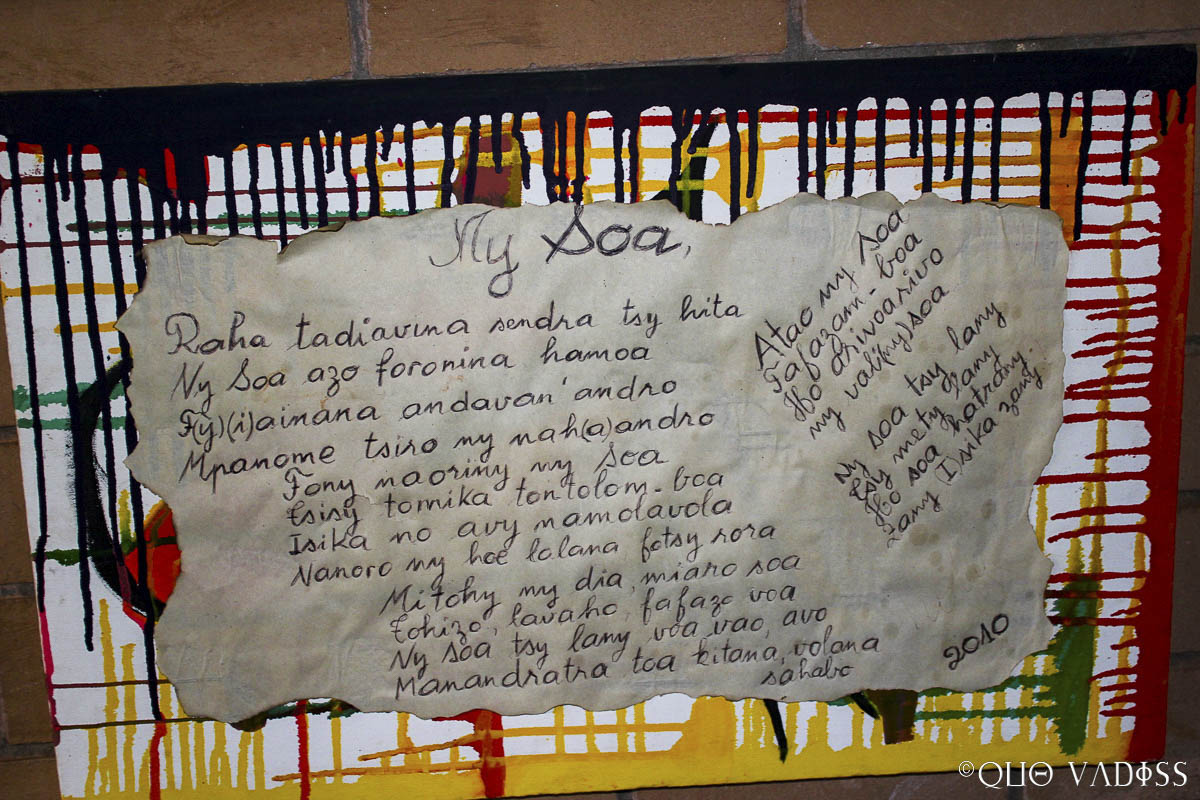 Ny Soa,
Raha tadiavina sendra tsy hita
Ny Soa azo foronina hamoa
F(y)(i)ainana andavan'andro
Mpanome tsiro ny nah(a)andro
Fony naoriny ny soa
tsisy tomika tontolom-boa
Isika no avy namolavola
Nanoro ny hoe lalana fotsy rora
Mitohy ny dia, miaro soa
tohizo, lavaho, fafazo voa
Ny soa tsy lany voa vao, avo
Manandratra toa kitana, volana
sahabo
Atao ny soa
Fafazam-boa
Ho arivoarivo
ny vali(ny)soa
Ny soa tsy lany
tsy mety lany
Ho soa hatrany.
zany Isika zany
2010
©QUO VADISS